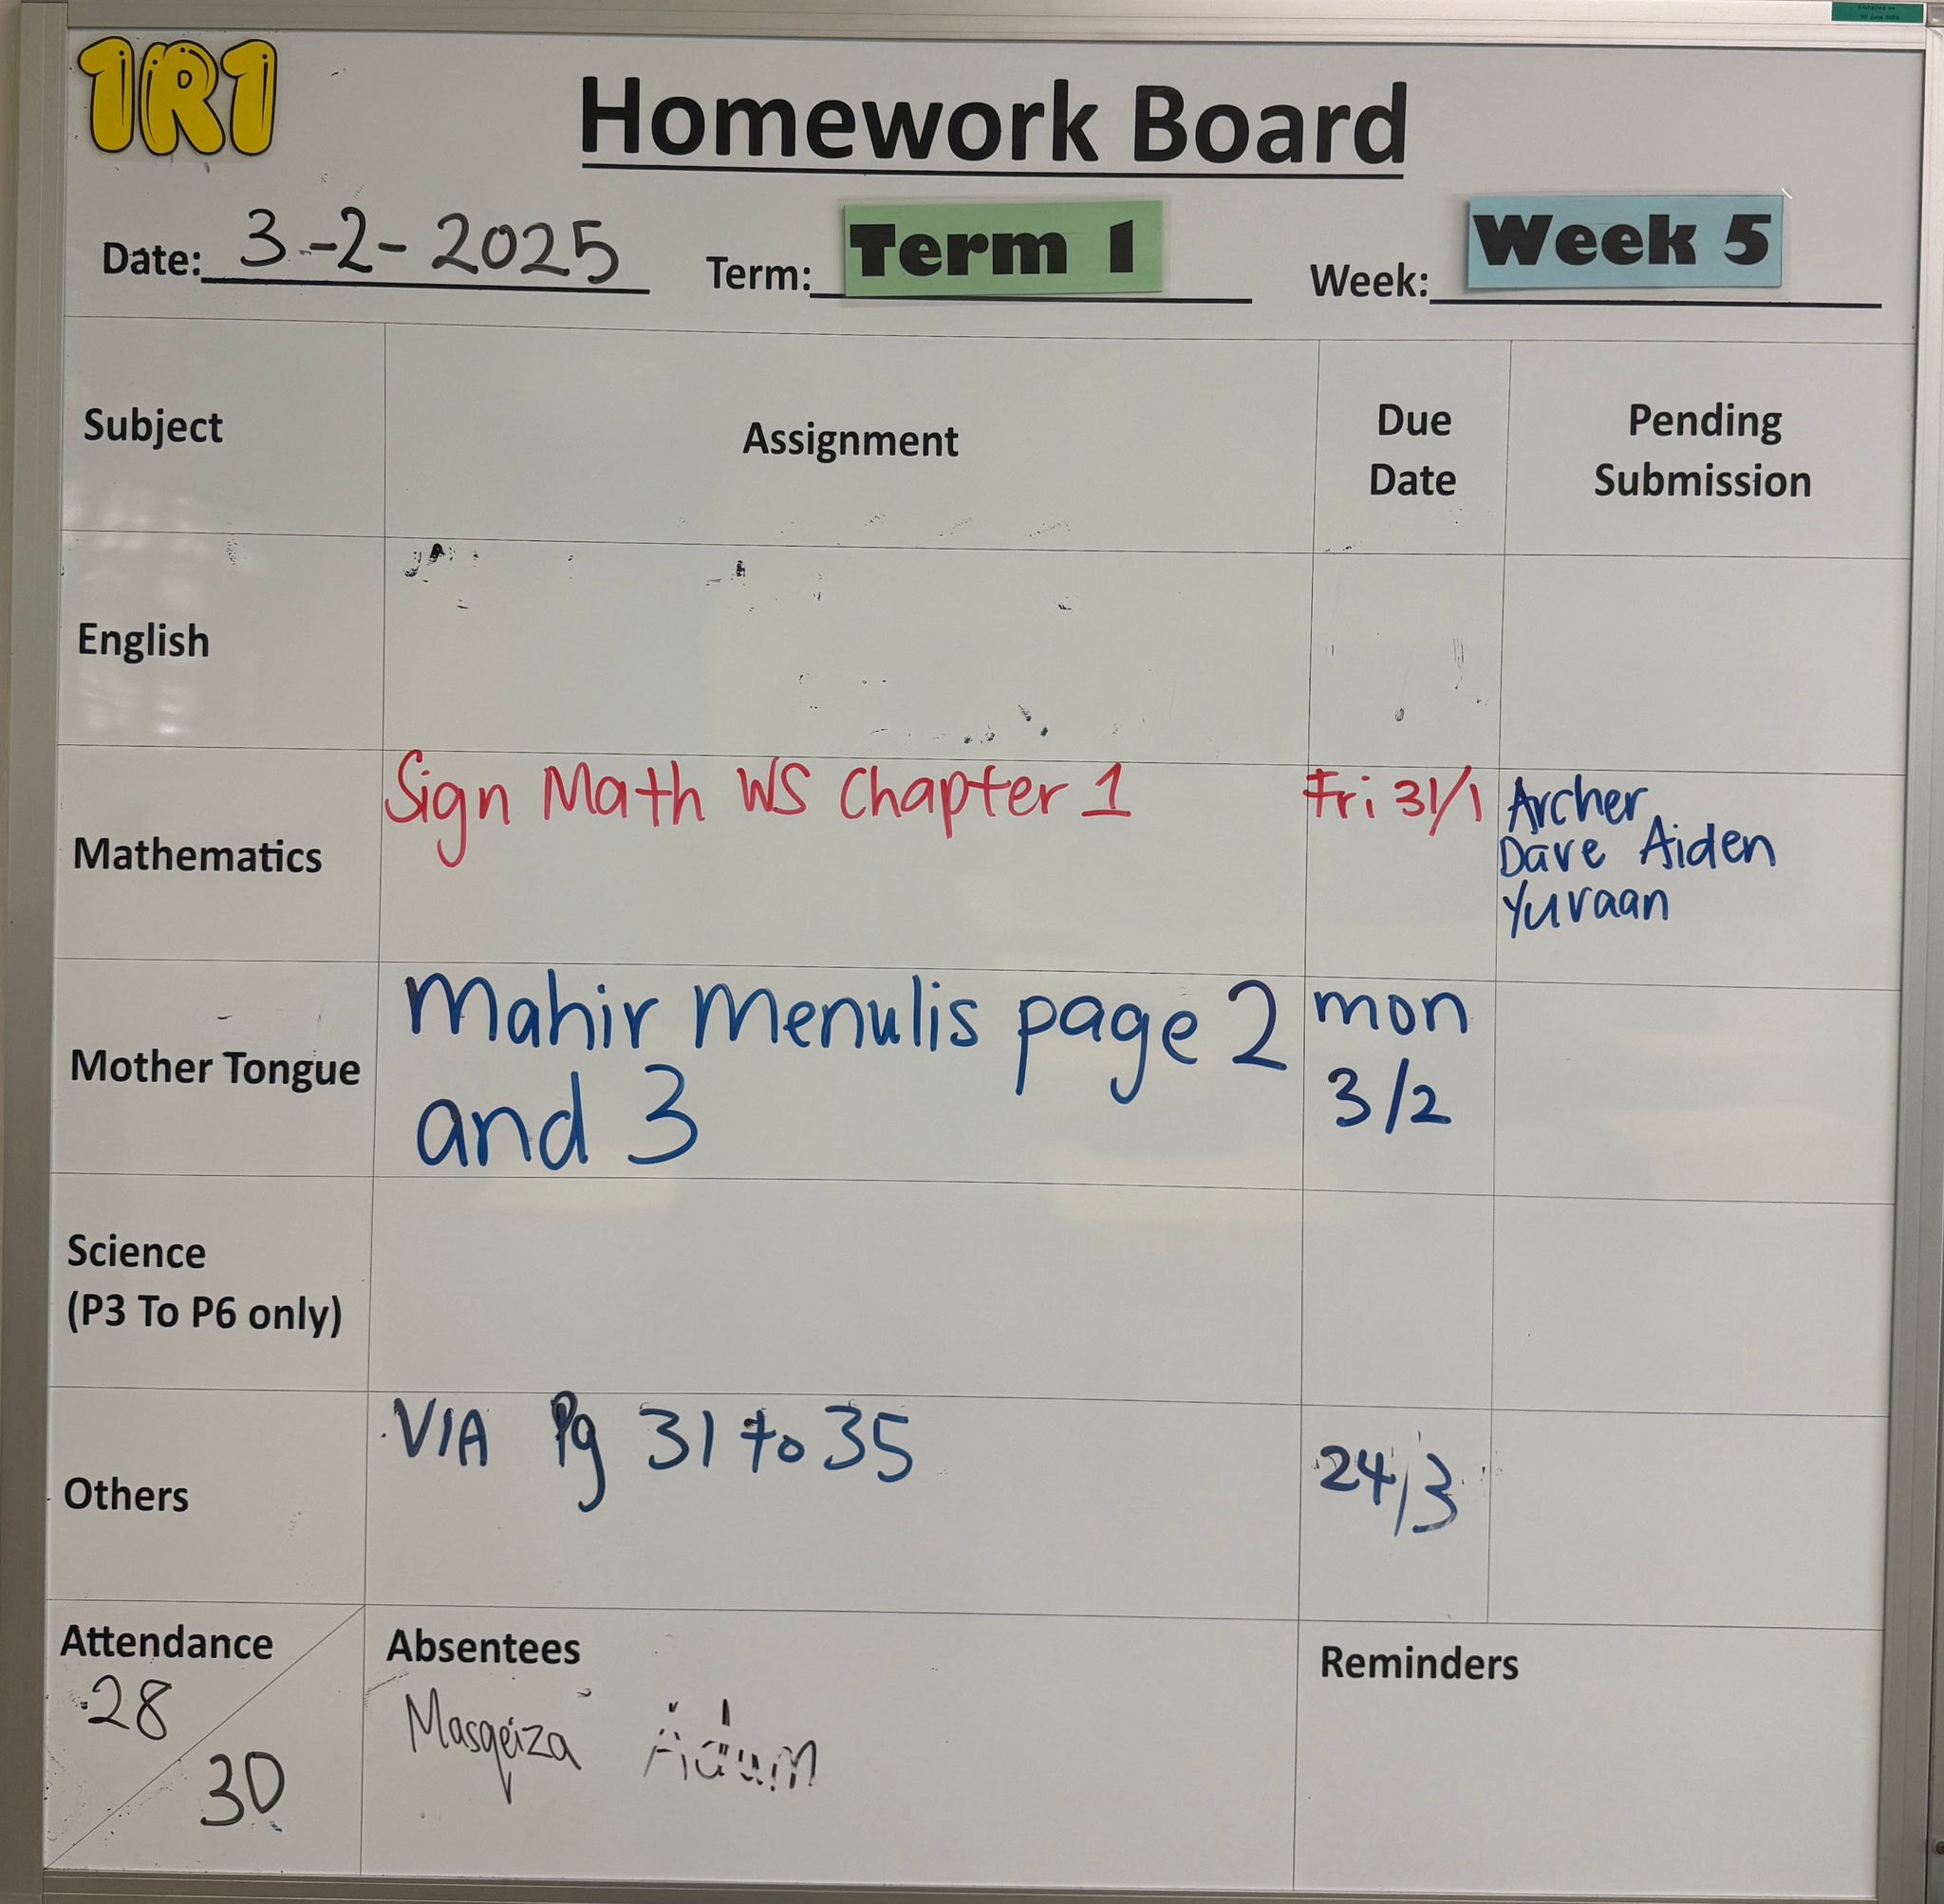 1R1
Homework Board
Date: 3-2-2025 Term: Term 1 Week: Week 5
Subject Assignment Due Date Pending Submission
English
Mathematics Sign Math WS Chapter 1 Fri 31/1 Archer
Dave Aiden
Yuvaan
Mother Tongue Mahir Menulis page 2 mon
and 3 3/2
Science
(P3 To P6 only)
Others VIA Pg 31 to 35 24/3
Attendance Absentees Reminders
28 Masqeiza Adam
30